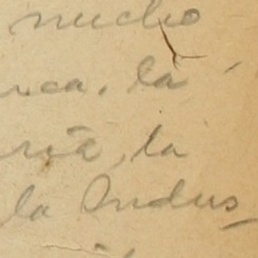 mucho
rca, la
ria, la
la Indus